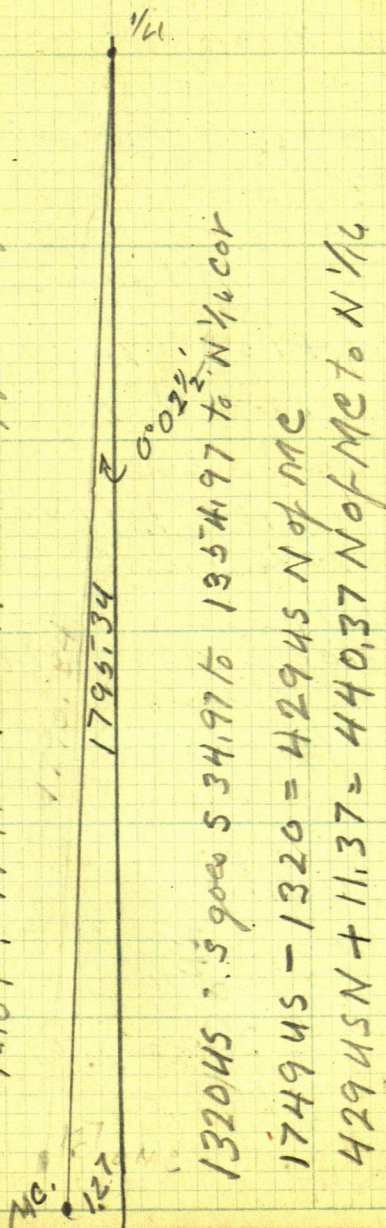 1/4
0°02½'
1795.34
MC.
1.27
1320 US ∴ S goes S 34.97 to 1354.97 to N 1/16 cor
1749 US - 1320 = 429 US N of MC
429 US N + 11.37 = 440.37 N of MC to N 1/16